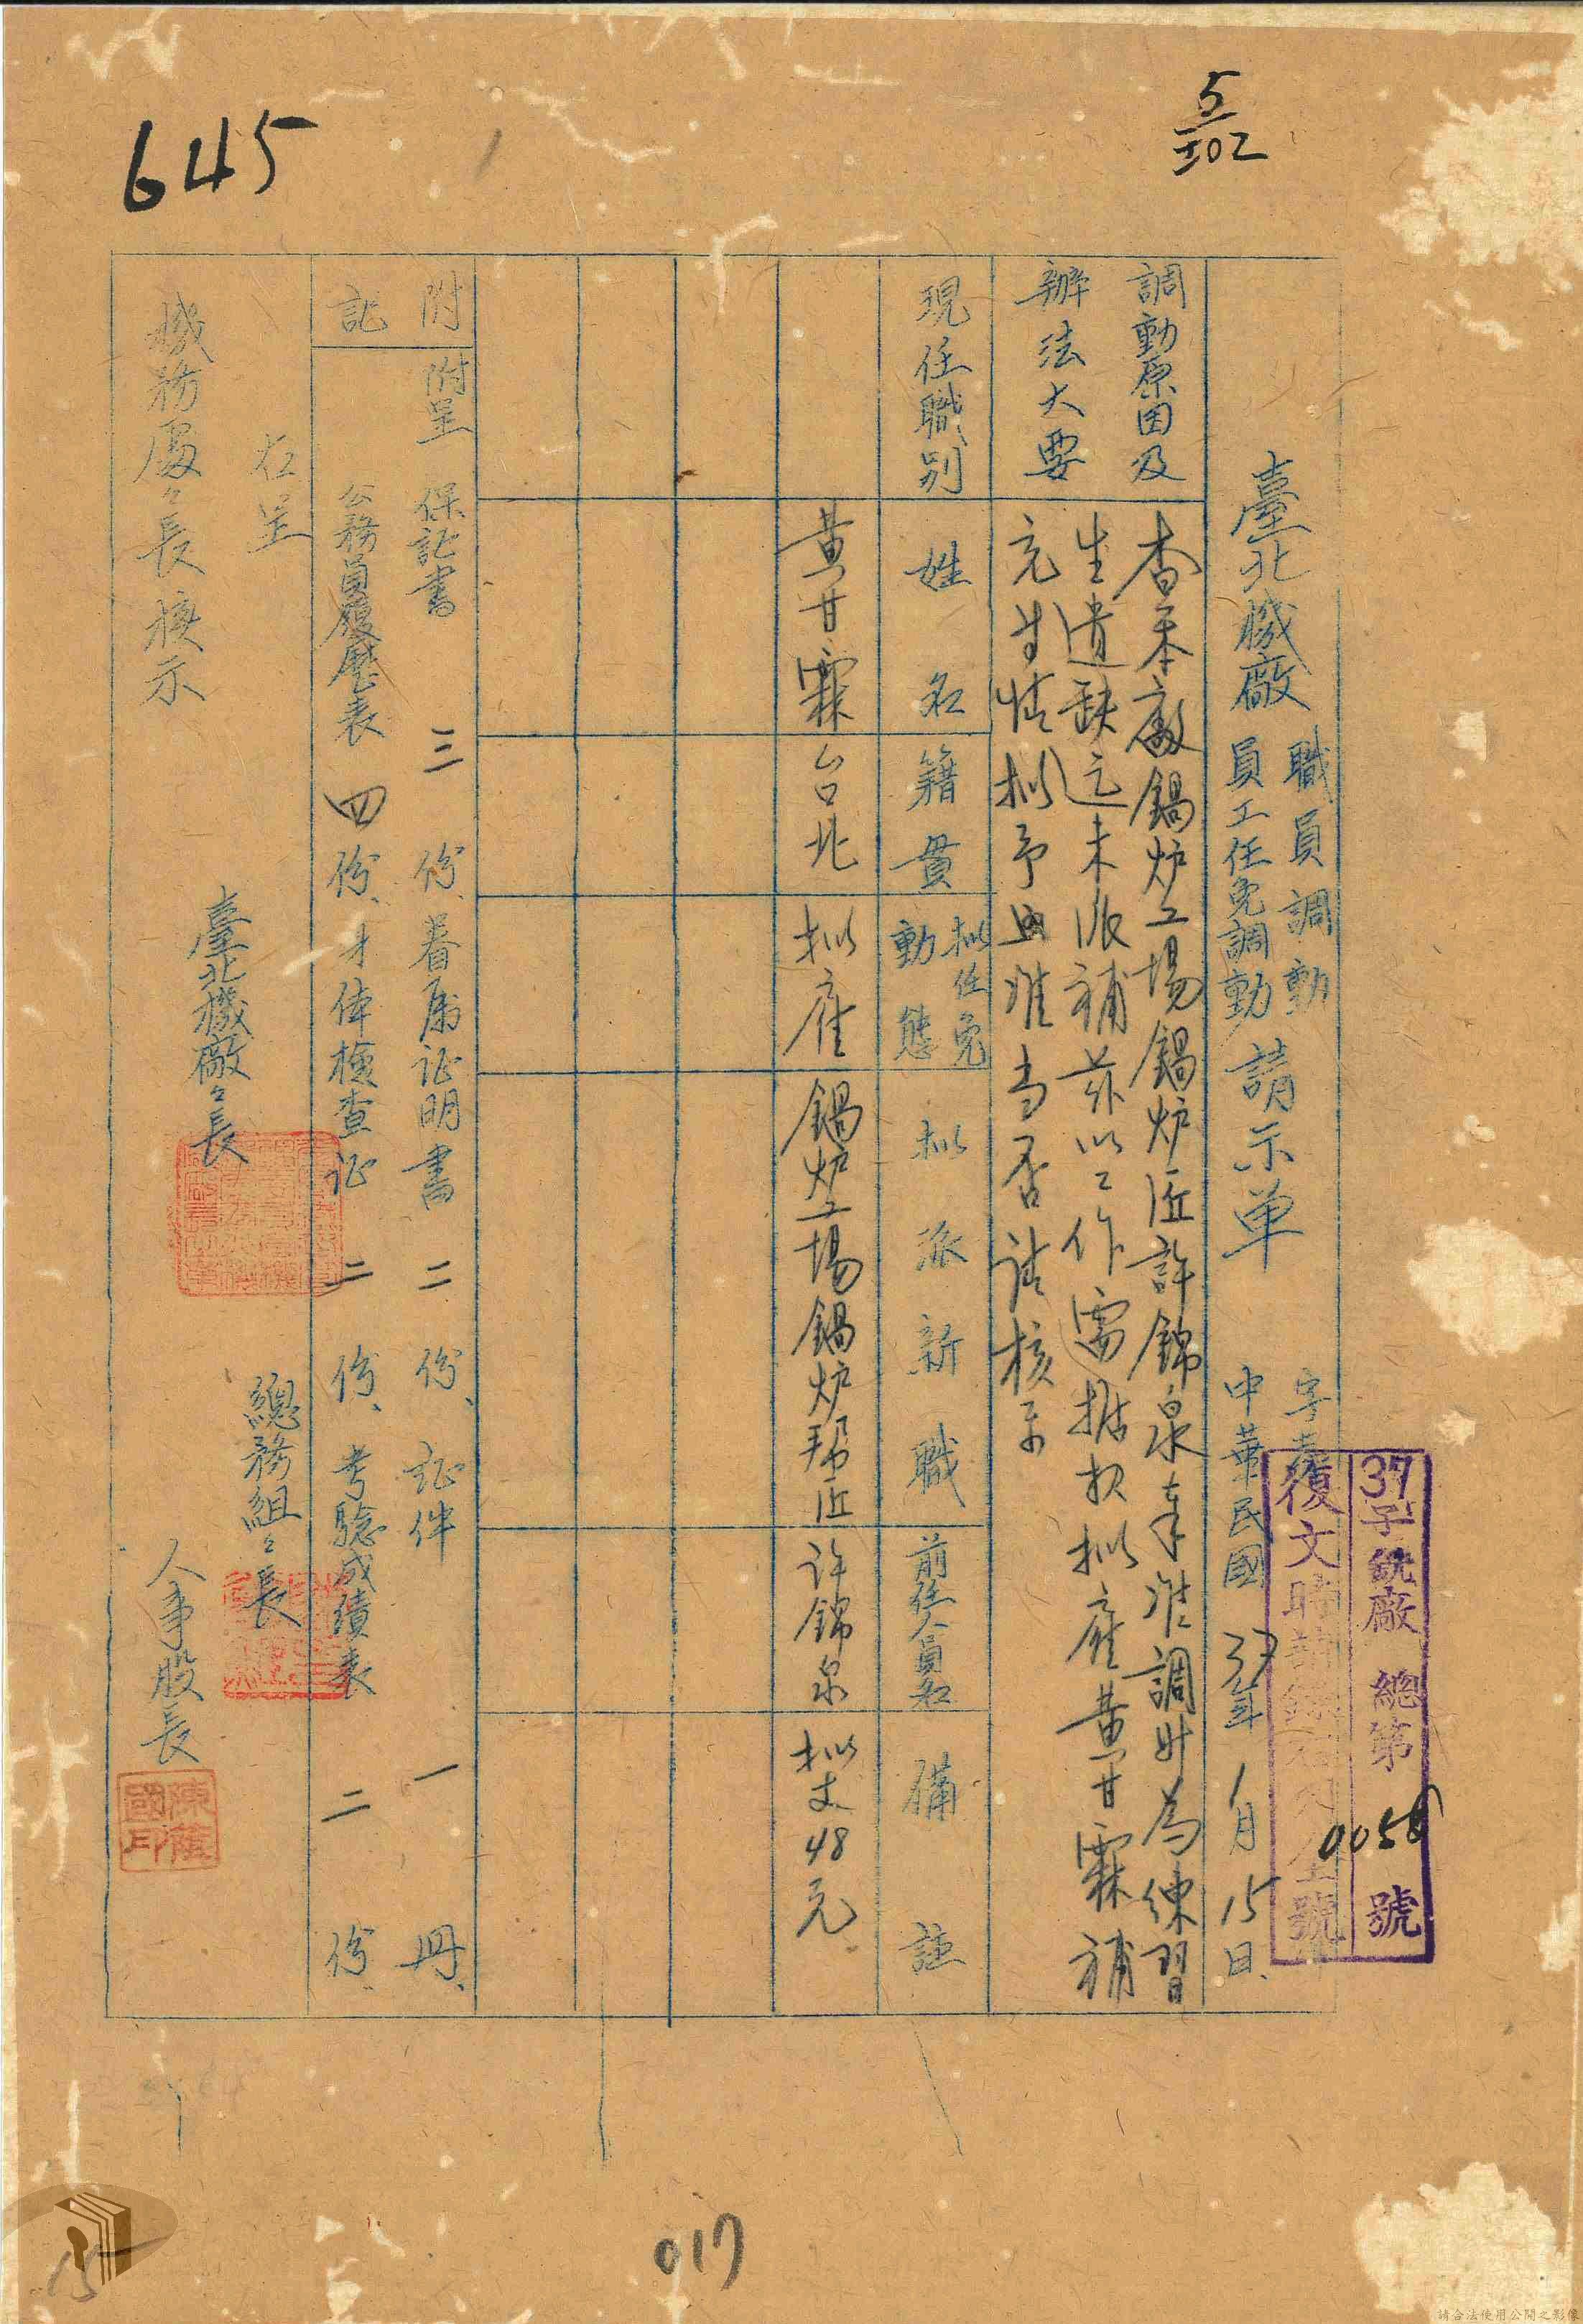 645
5
502
37子銑廠 總第0058號
復文時請錄右列人王號
臺北機廠
職員調動
員工任免調動
請示單
字第
中華民國 37年1月15日
調動原因及
辦法大要
查本廠鍋炉工場鍋炉匠許錦泉奉准調升為練習
生遺缺迄未派補茲以工作需據報拟雇黃甘霖補
充等情拟予照准當否請核示
現任職別
姓名
籍貫
拟任免
動態
拟派新職
前任人員名
備註
黃甘霖
台北
拟雇
鍋炉工場鍋炉帮匠
許錦泉
拟支48元
附
記
附呈 保証書 三份、眷屬証明書 二份、証件 一冊、
公務員履歷表 四份、才体檢查証 二份、考驗成績表 二份、
右呈
機務處々長核示
臺北機廠々長
總務組々長
人事股長
陳蔭國印
017
15
請合法使用公開之影像